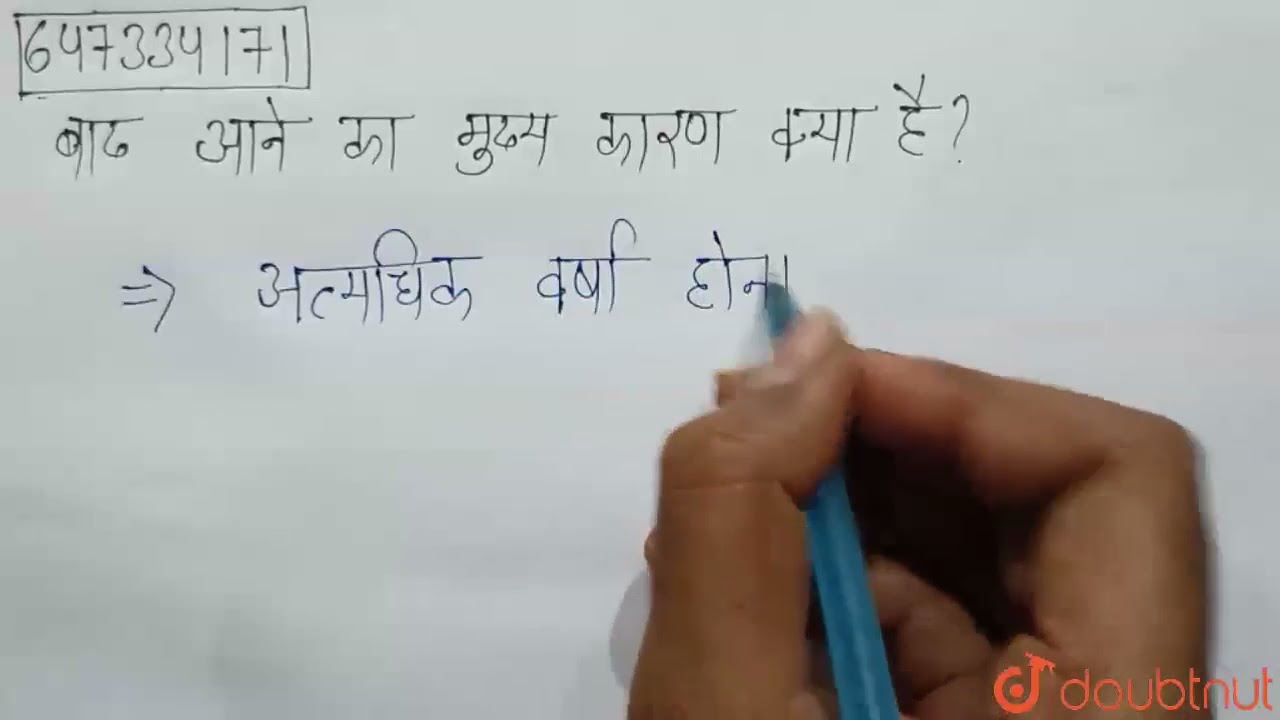 647334171
बाढ आने का मुख्य कारण क्या है?
⇒ अत्यधिक वर्षा होना
doubtnut